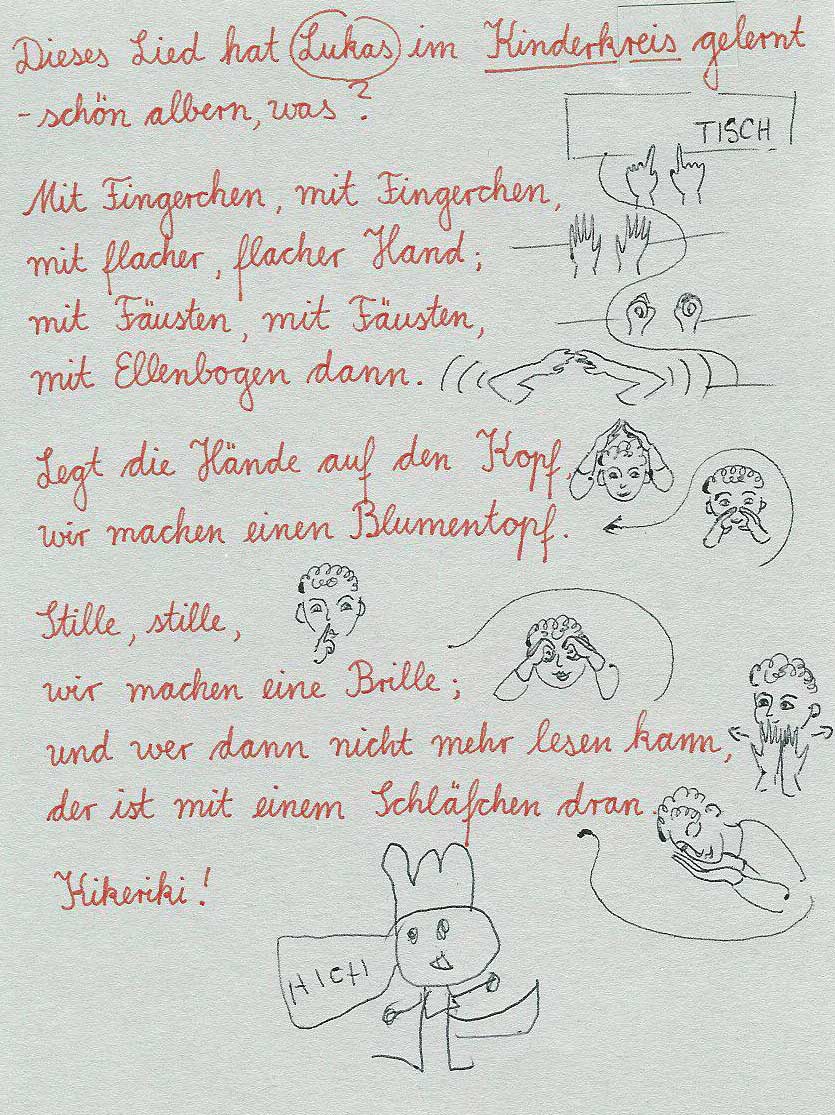 Dieses Lied hat Lukas im Kinderkreis gelernt
- schön albern, was?
TISCH
Mit Fingerchen, mit Fingerchen,
mit flacher, flacher Hand;
mit Fäusten, mit Fäusten,
mit Ellenbogen dann.
Legt die Hände auf den Kopf,
wir machen einen Blumentopf.
Stille, stille,
wir machen eine Brille;
und wer dann nicht mehr lesen kann,
der ist mit einem Schläfchen dran.
Kikeriki!